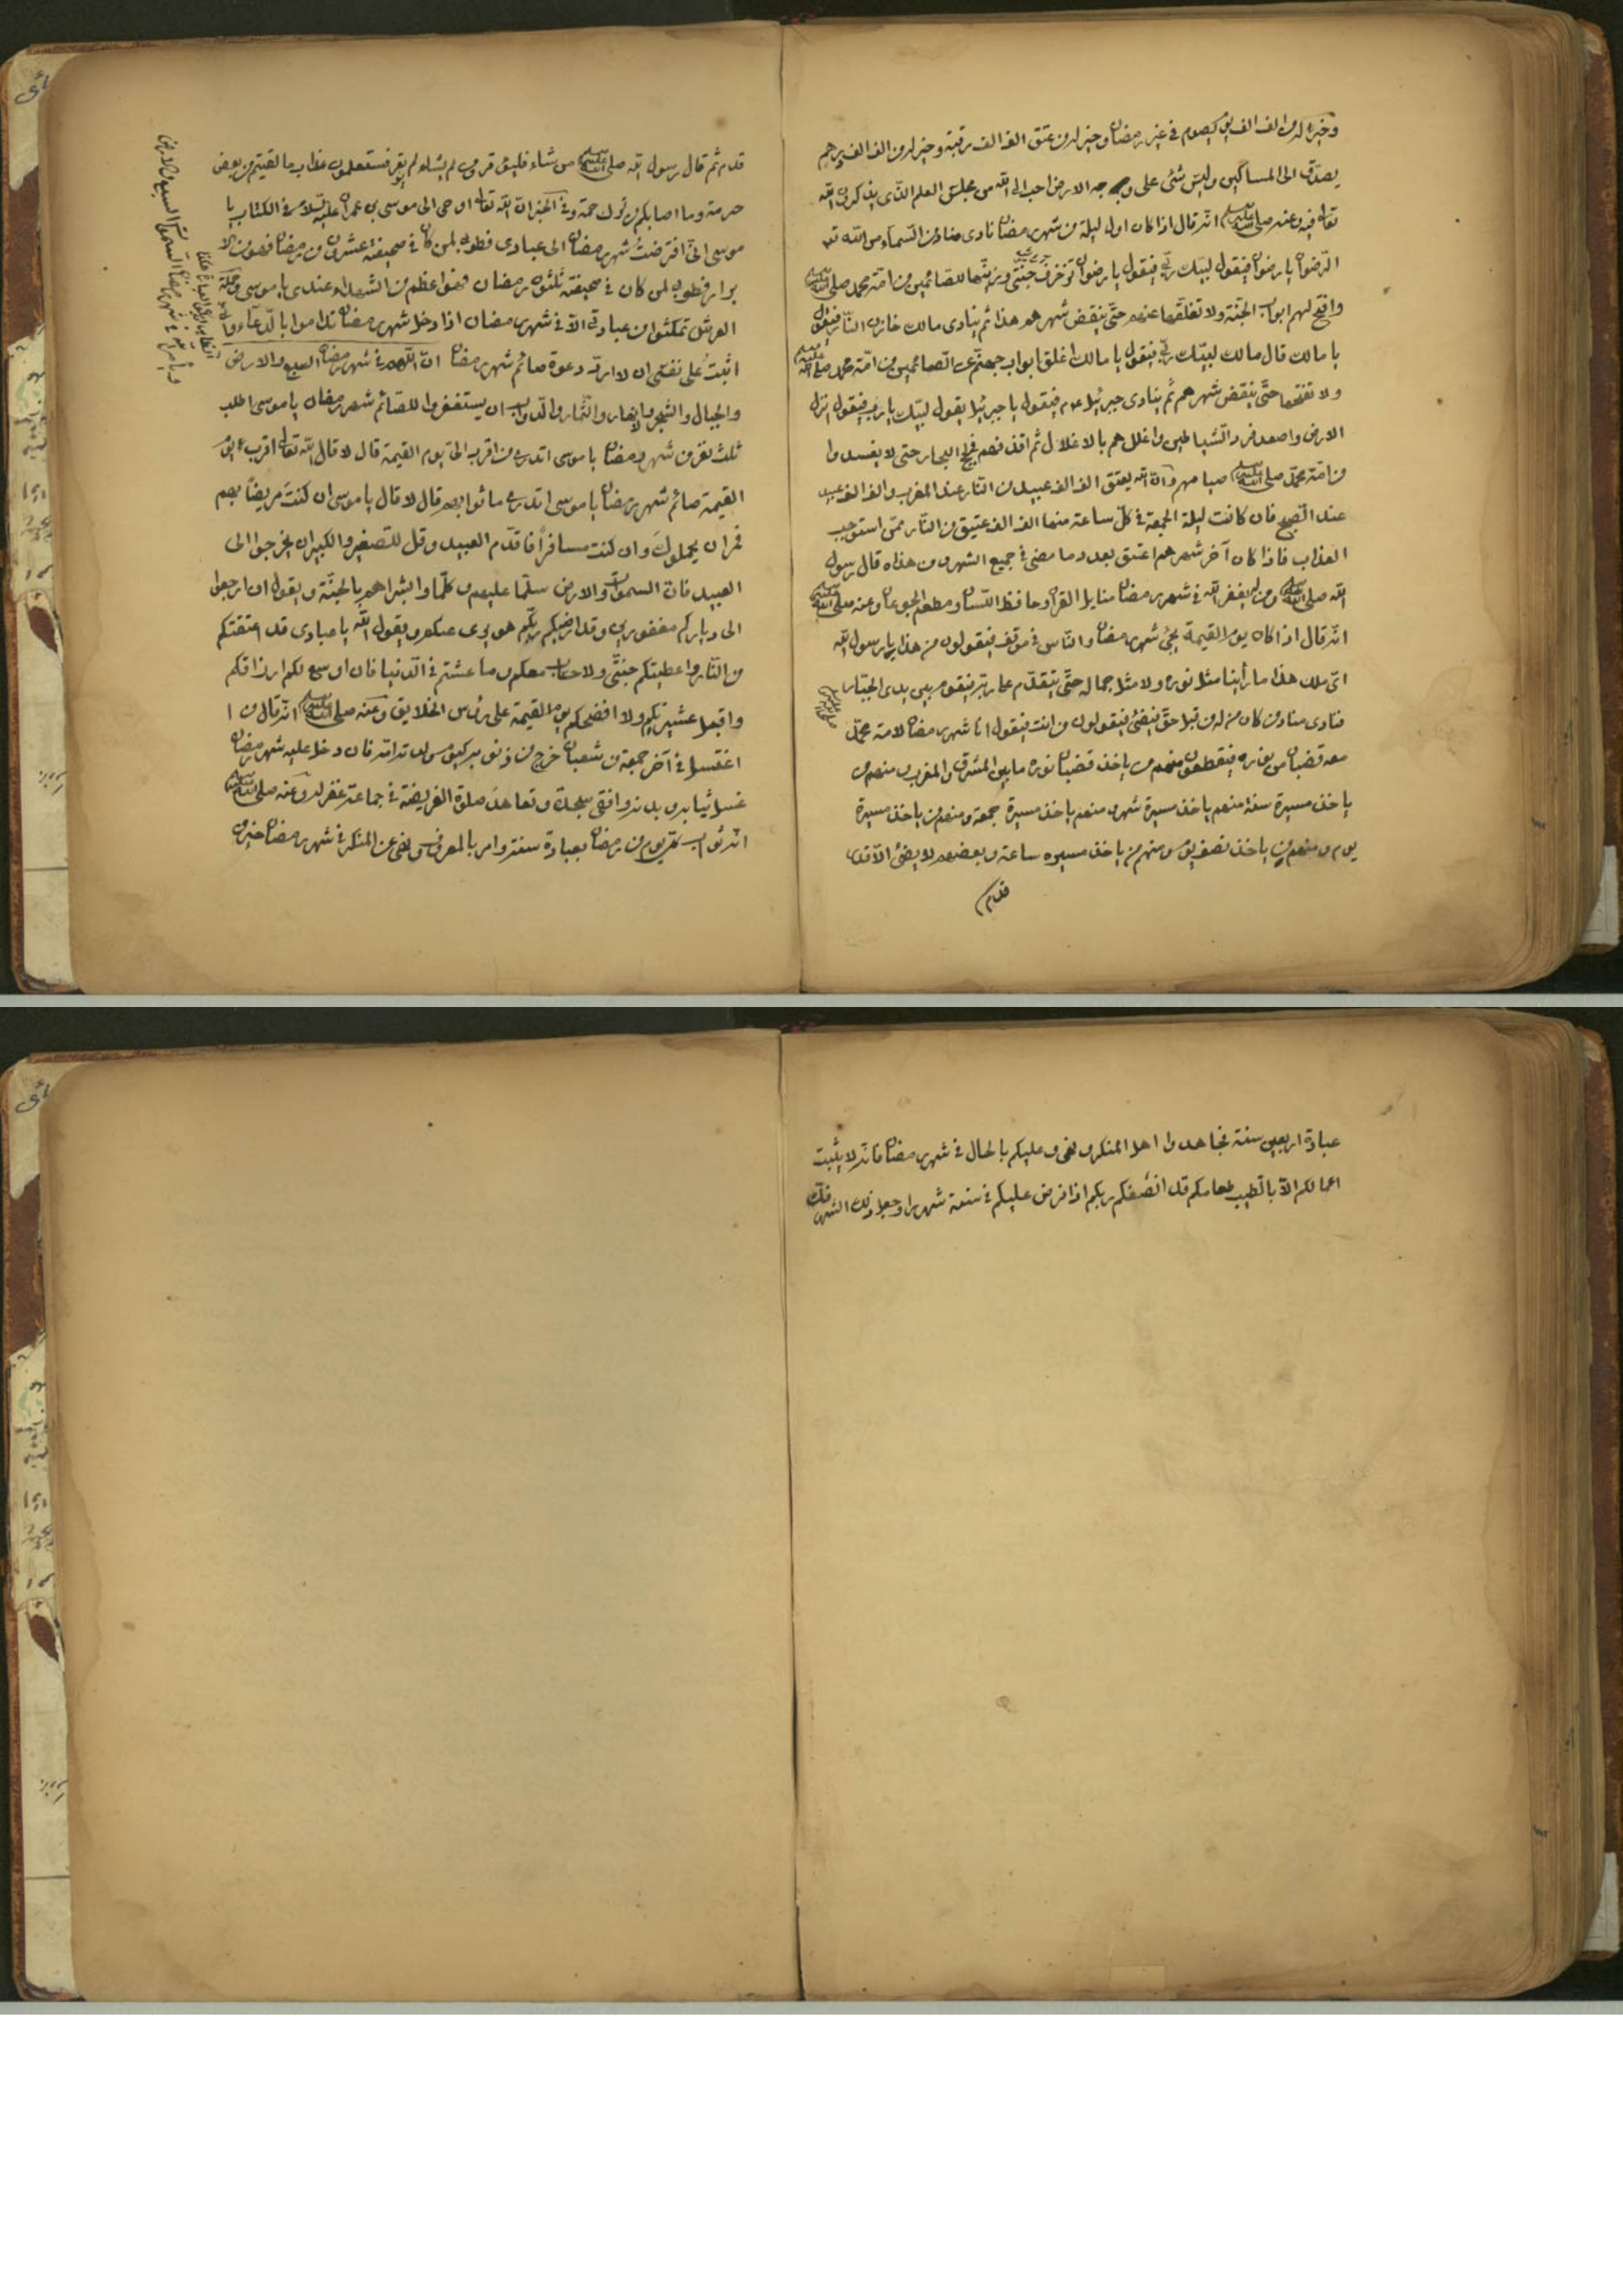 وخير له من الف الف يوم يصوم في غير رمضان وخير له من عتق الف الف رقبة وخير له من الف الف درهم
يصدق الى المساكين وليس شئ على وجه الارض احب الى الله من مجلس العلم الذى يذكرون الله
تعالى فيه وعنه صلى الله عليه وسلم انه قال اذا كان اول ليلة من شهر رمضان نادى مناد من السماء من الله تعا
الرضوان يا رضوان فيقول لبيك ربى فيقول يا رضوان زخرف جنتى وزينها للصائمين من امة محمد صلى الله عليه وسلم
وافتح لهم ابواب الجنة ولا تغلقها عنهم حتى ينقض شهرهم هذا ثم ينادى مالك خازن النار فيقول
يا مالك قال مالك لبيك ربى فيقول يا مالك اغلق ابواب جهنم عن الصائمين من امة محمد صلى الله عليه وسلم
ولا تفتحها حتى ينقض شهرهم ثم ينادى جبرئيل عم فيقول يا جبرئيل يقول لبيك يا رب فيقول انزل
الارض واصفد مرد الشياطين واغللهم بالاغلال ثم اقذفهم في لجج البحار حتى لا يفسدوا
من امة محمد صلى الله عليه وسلم صيامهم وان الله يعتق الف الف عبيد من النار عند المغرب والف الف عبيد
عند الصبح فان كانت ليلة الجمعة في كل ساعة منها الف الف عتيق من النار ممن استوجب
العذاب فاذا كان آخر شهرهم اعتق بعدد ما مضى في جميع الشهر من هذاه قال رسول
الله صلى الله عليه وسلم ومن لم يغفر الله في شهر رمضان القرآن وحافظ اللسان ومطعم الجوعان وعنه صلى الله عليه وسلم
انه قال اذا كان يوم القيمة يجئ شهر رمضان والناس في موقف فيقولون من هذا يا رسول الله
اى ملك هذا ما رأينا مثل نوره ولا مثل جماله حتى يتقدم فيقوم بين يدى الجبار
فنادى مناد من كان من له من قبل حق فيقولون من انت فيقول انا شهر رمضان لامة محمد
معه قضبان من نوره فيقطعون منهم من ياخذ قضبان نوره ما بين المشرق والمغرب ومنهم من
ياخذ مسيرة سنة منهم ياخذ مسيرة شهر ومنهم ياخذ مسيرة جمعة ومنهم من ياخذ مسيرة
يوم ومنهم من ياخذ نصف يوم ومنهم من ياخذ مسيره ساعة وبعضهم لا يضئ الا قدر
قدم
قدم ثم قال رسول الله صلى الله عليه وسلم من شاء فليوقر ومن لم يشاء لم يوقر فستعلمون عذاب ما لقيتم من بعض
حرمة وما اصابكم من ترك حرمة وفي الخبر ان الله تعالى اوحى الى موسى بن عمران عليه السلام في الكتاب يا
موسى انى افترضت شهر رمضان الى عبادى فطوبى لمن كان في صحيفته عشرون من رمضان فهو من الا
برار فطوبى لمن كان في صحيفته ثلثون رمضان فهو اعظم من الشهداء عندى يا موسى وحملة
العرش تمكثوا من عبادتى الا في شهر رمضان اذا دخل شهر رمضان تداموا بالدعاء وما
اثبت على نفسى ان لا ارد دعوة صائم شهر رمضان ان الله في شهر رمضان السبع والارض
والجبال والشجر والانهار والثمار والدواب ان يستغفروا للصائم شهر رمضان يا موسى اطلب
ثلث نفر من شهر رمضان يا موسى اتدرى من اقرب الى يوم القيمة قال لا قال الله تعالى اقرب يوم
القيمة صائم شهر رمضان يا موسى اتدرى ما ثوابهم قال لا قال يا موسى ان كنت مريضا بهم
فمر ان يحملوك وان كنت مسافرا فاقدم العبيد وقل للصغير والكبير ان اخرجوا الى
العبيد فان السموات والارض سلما عليهم وكلما وابشراهم بالجنة ويقول ان ارجعوا
الى دياركم مغفورين وقد ارضيكم ربكم ويقول الله يا عبادى قد اعتقتكم
من النار واعطيتكم جنتى ولا حساب معكم وما عشتم في الدنيا فان اوسع لكم ارزاقكم
واقبل عشيرتكم ولا افضحكم يوم القيمة على رؤس الخلايق وعنه صلى الله عليه وسلم انه قال من ا
اغتسل في آخر جمعة من شعبان خرج من ذنوبه كيوم ولدته امه فان دخل عليه شهر رمضان
غسل ثيابه وبدنه وافتى سجدة وتعاهد صلوة الفريضة في جماعة غفر له وعنه صلى الله عليه وسلم
انه ثواب من رمضان بعبادة سنة وامر بالمعروف ونهى عن المنكر في شهر رمضان خير من
عبادة اربعين سنة فجاهدوا اهل المنكر ونهى وعليكم بالحال في شهر رمضان فانه لا يثبت
اعمالكم الا بالطيب طعامكم قد انصفكم ربكم اذا فرض عليكم في سنة شهرا وجعل ذلك الشهر